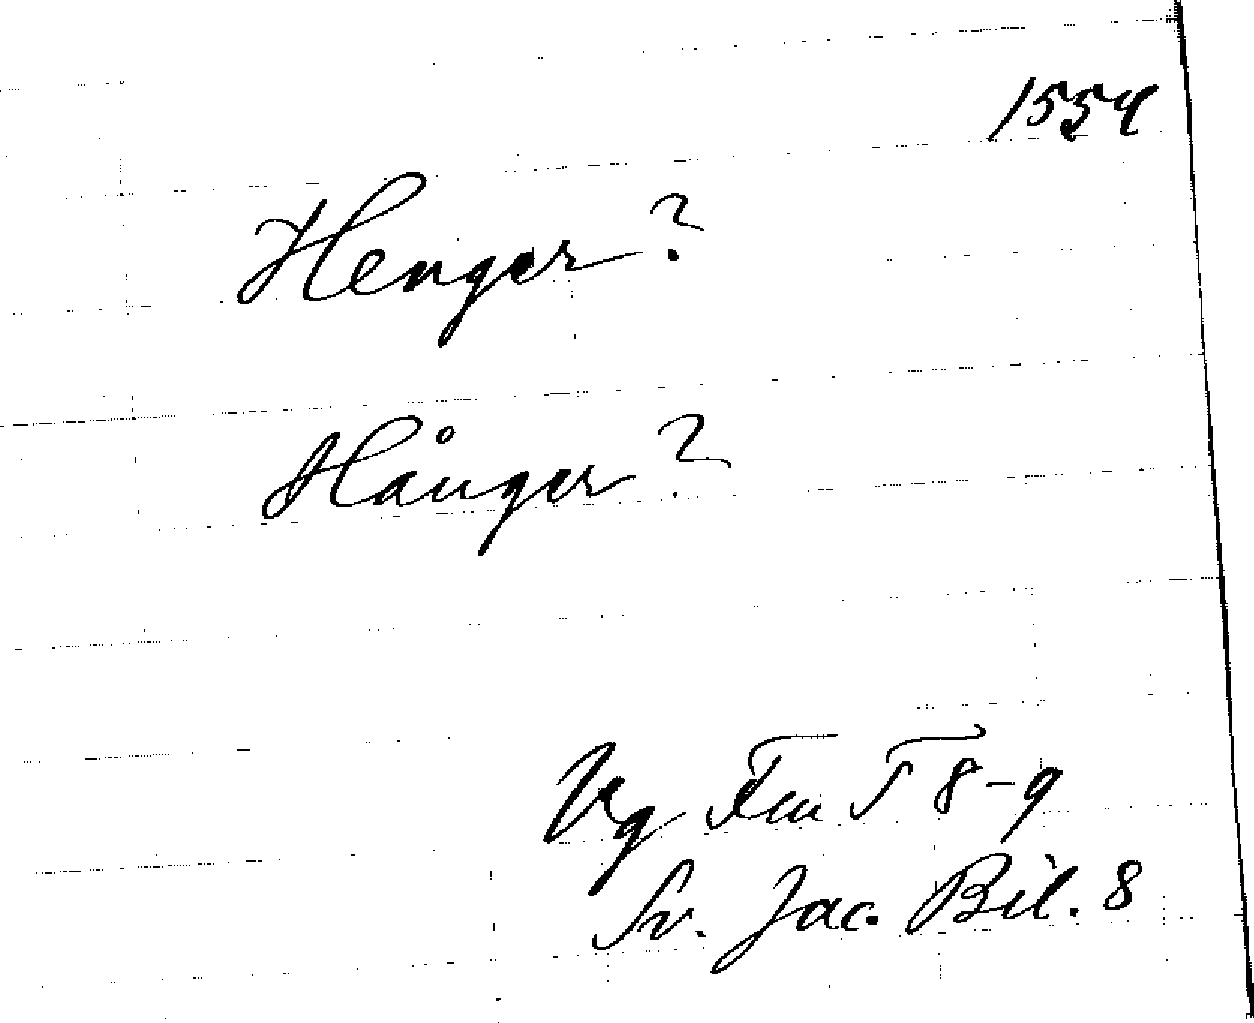 1554
Henger?
Hånger?
Vg Fm T 8-9
Sv. Jac. Bil. 8